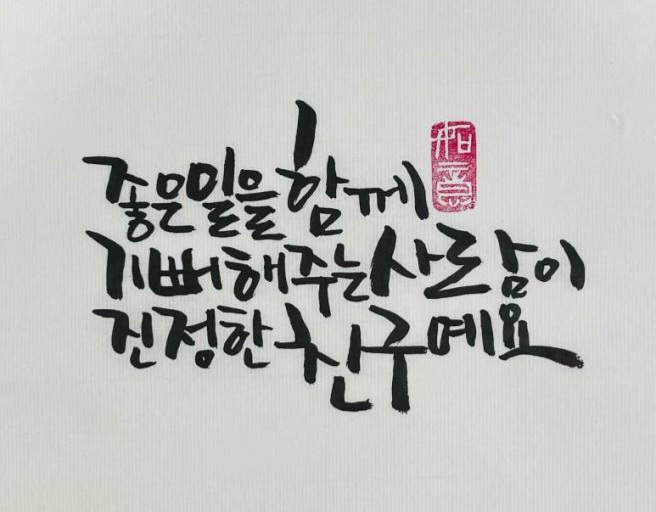 좋은일을 함께
기뻐해주는 사람이
진정한 친구예요